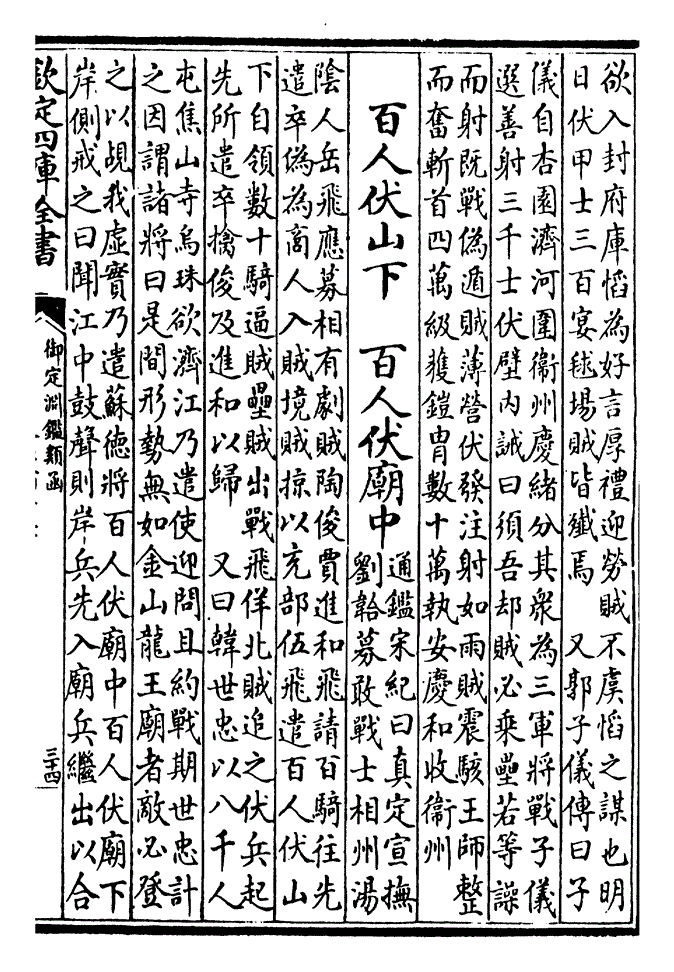 欲入封府庫慆為好言厚禮迎勞賊不虞慆之謀也明
日伏甲士三百宴毬場賊皆殲焉　又郭子儀傳曰子
儀自杏園濟河圍衞州慶緒分其衆為三軍將戰子儀
選善射三千士伏壁内誡曰須吾却賊必乘壘若等譟
而射既戰偽遁賊薄營伏發注射如雨賊震駭王師整
而奮斬首四萬級獲鎧胄數十萬執安慶和收衞州
百人伏山下　百人伏廟中
通鑑宋紀曰真定宣撫
劉韐募敢戰士相州湯
陰人岳飛應募相有劇賊陶俊賈進和飛請百騎往先
遣卒偽為商人入賊境賊掠以充部伍飛遣百人伏山
下自領數十騎逼賊壘賊出戰飛佯北賊追之伏兵起
先所遣卒擒俊及進和以歸　又曰韓世忠以八千人
屯焦山寺烏珠欲濟江乃遣使迎問且約戰期世忠計
之因謂諸將曰是間形勢無如金山龍王廟者敵必登
之以覘我虛實乃遣蘇德將百人伏廟中百人伏廟下
岸側戒之曰聞江中鼓聲則岸兵先入廟兵繼出以合
欽定四庫全書
御定淵鑑類函
三十四